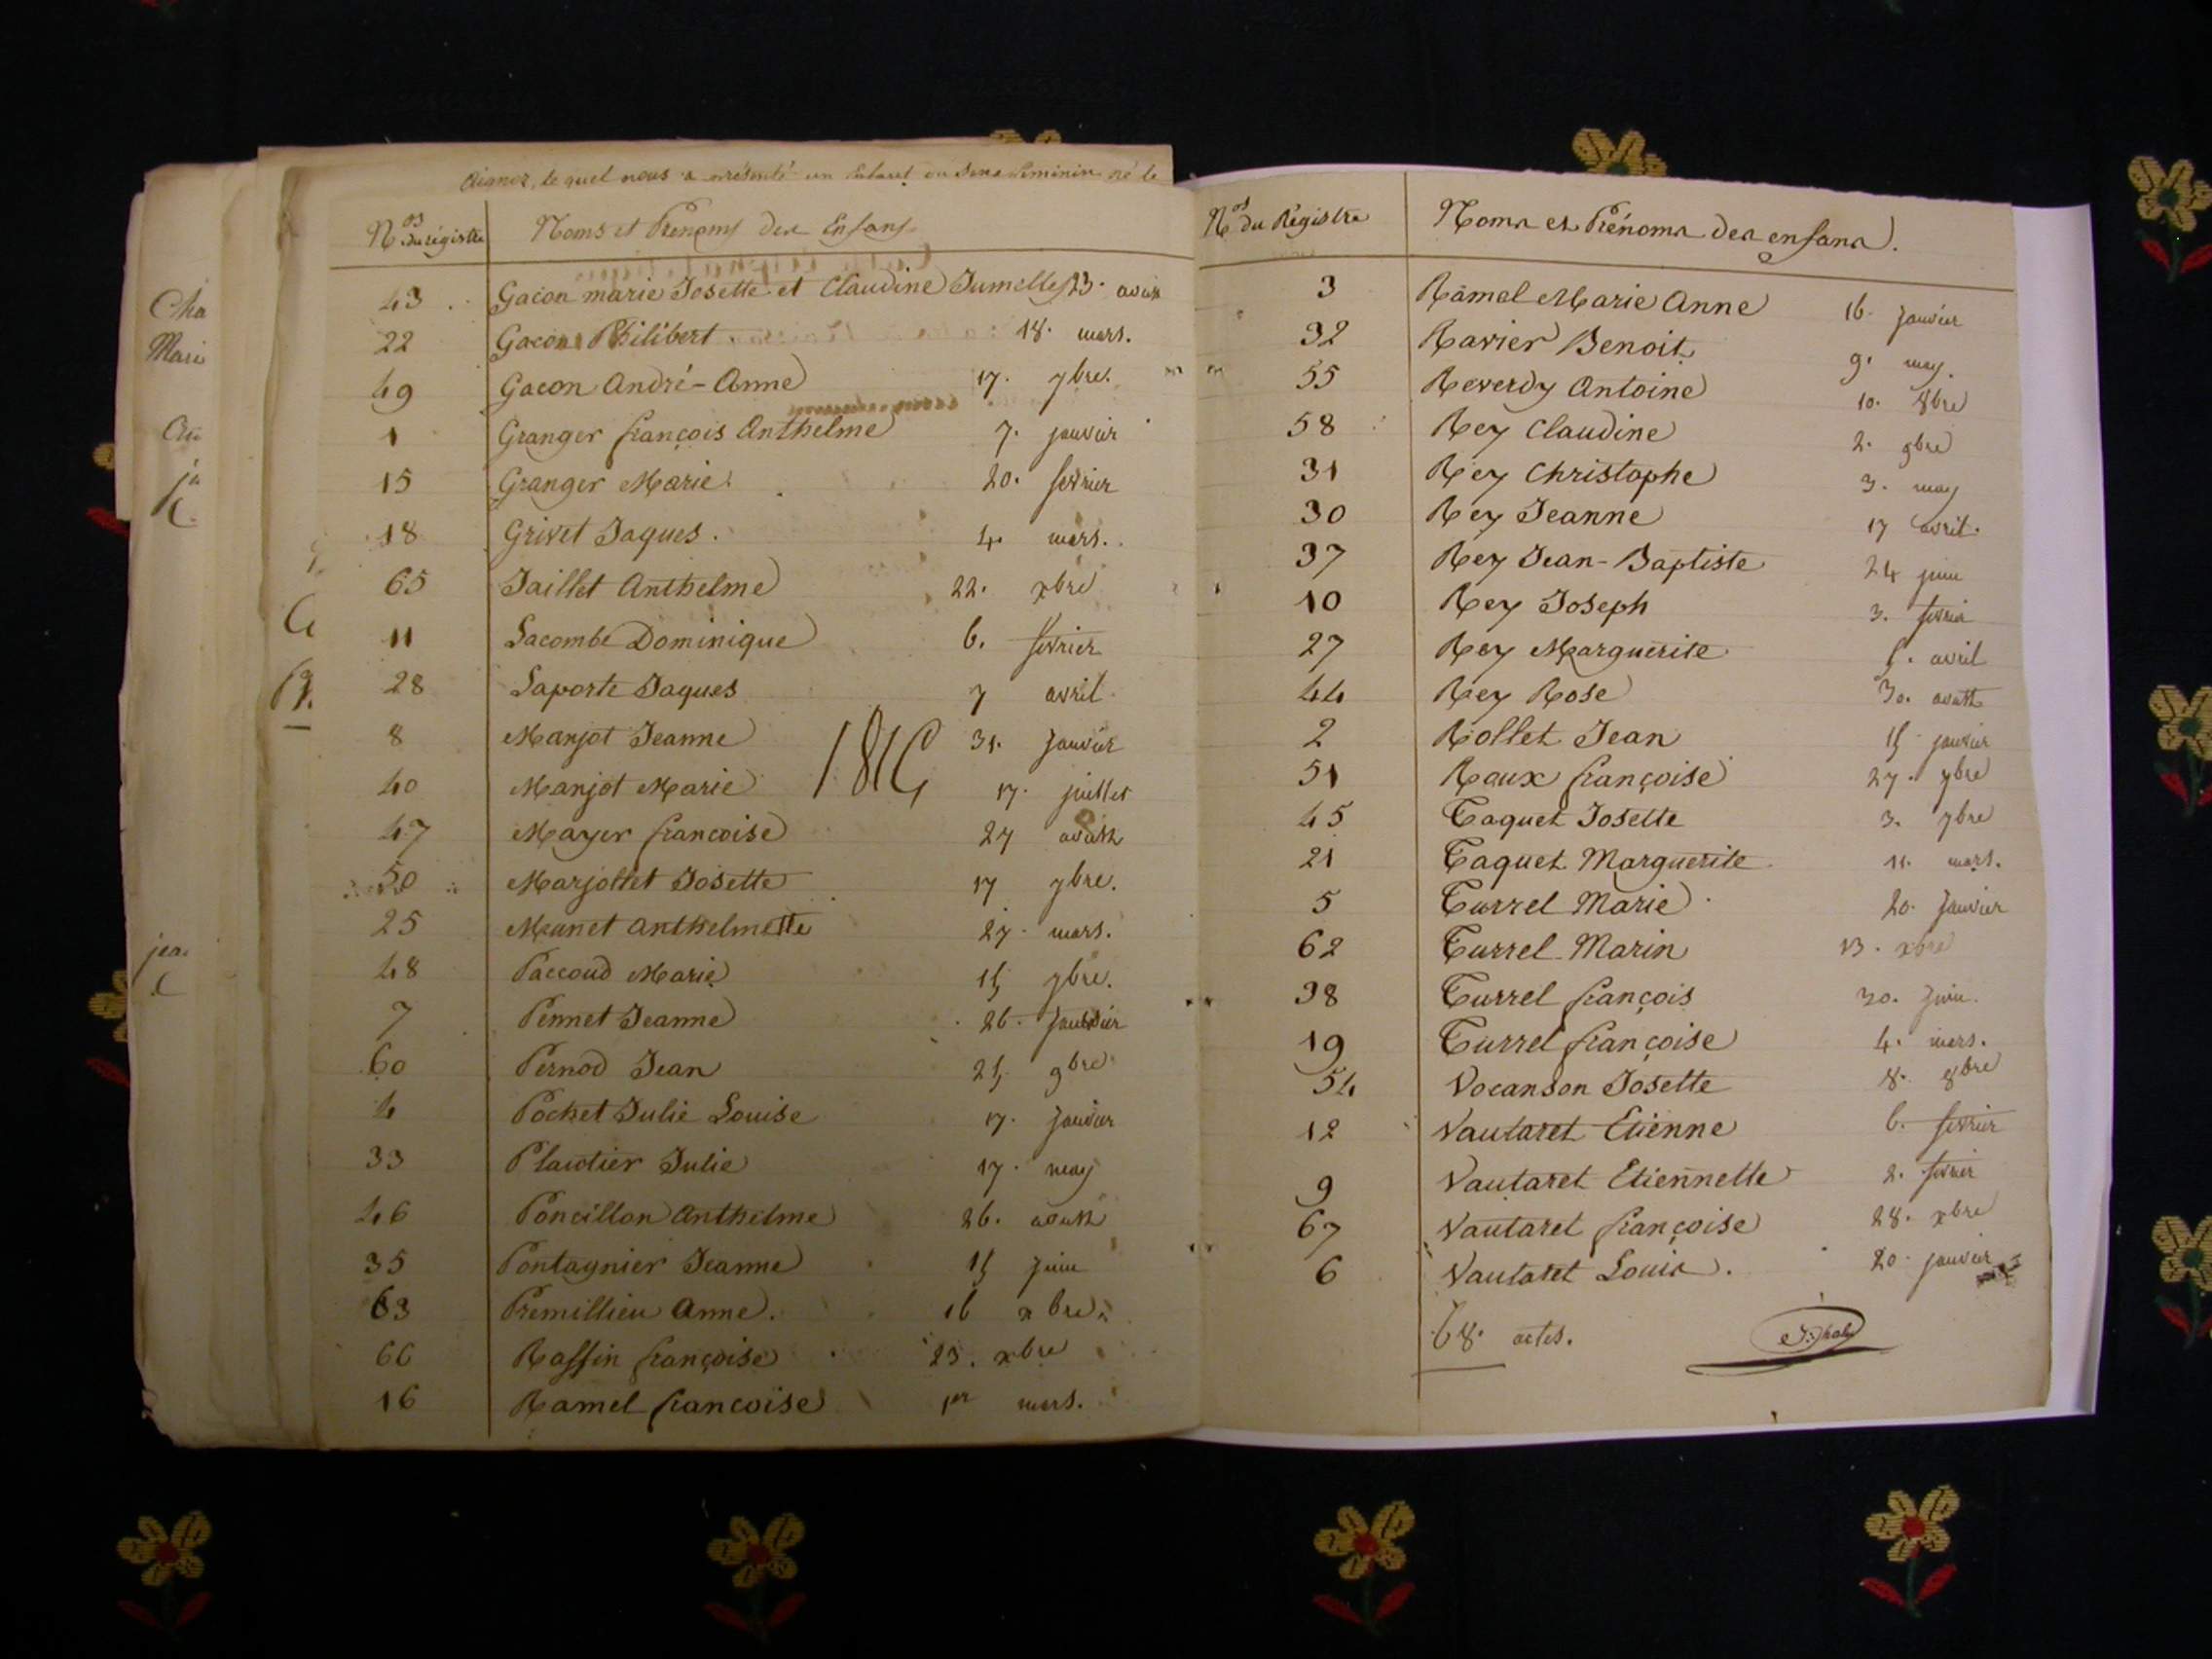 Aignoz, lequel nous a présenté un Enfant du Sexe féminin né le
Nos du régistre Noms et Prénoms des Enfans
43 Gacon marie Josette et Claudine Jumelles 23. aoust
22 Gacon Philibert 18. mars.
49 Gacon André-Anne 17. 7bre.
1 Granger françois Anthelme 7. janvier
15 Granger Marie 20. fevrier
18 Grivet Jaques. 4. mars.
65 Jaillet Anthelme 22. xbre
11 Lacombe Dominique 6. fevrier
28 Laporte Jaques 7 avril
8 Manjot Jeanne 31. Janvier
1816
40 Manjot Marie 17. juillet
47 Mayer francoise 27 aoust
50 Marjollet Josette 17 7bre.
25 Munet anthelmette 27. mars.
48 Paccoud Marie 15 7bre.
7 Pennet Jeanne 26. Janvier
60 Pernod Jean 25 9bre
4 Pochet Julie Louise 17. Janvier
33 Plantier Julie 17. may
46 Poncillon Anthelme 26. aoust
35 Pontagnier Jeanne 15 Juin
63 Premillieu Anne. 16 xbre.
66 Raffin françoise 23. xbre
16 Ramel francoise 1er mars.
Cha
Mari
jea
Nos du Régistre Noms et Prénoms des enfans.
3 Ramel Marie Anne 16. Janvier
32 Ravier Benoit 9. may.
55 Reverdy Antoine 10. 8bre
58 Rey Claudine 2. 9bre
31 Rey Christophe 3. may
30 Rey Jeanne 17 avril.
37 Rey Jean-Baptiste 24 juin
10 Rey Joseph 3. fevrier
27 Rey Marguerite 5. avril
44 Rey Rose 30. aoust
2 Rollet Jean 15 janvier
51 Roux françoise 27. 7bre
45 Taquet Josette 3. 7bre
21 Taquet Marguerite 11. mars.
5 Turrel Marie 20. Janvier
62 Turrel Marin 13. xbre
38 Turrel françois 30. Juin.
19 Turrel françoise 4. mars.
54 Vocanson Josette 8. 8bre
12 Vautaret Etienne 6. fevrier
9 Vautaret Etiennette 2. fevrier
67 Vautaret françoise 28. xbre
6 Vautaret Louis. 20. janvier
68. actes.